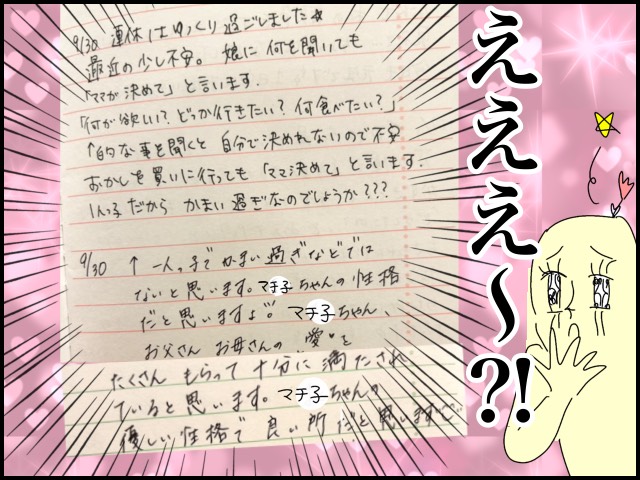 9/30 連休はゆっくり過ごしました☆
最近の少し不安。娘に何を聞いても
「ママが決めて」と言います。
「何が欲しい?どっか行きたい?何食べたい?」
↑的な事を聞くと自分で決めれないので不安
おかしを買いに行っても「ママ決めて」と言います.
1人っ子だからかまい過ぎなのでしょうか???
9/30 ↑一人っ子でかまい過ぎなどでは
ないと思います。マチ子ちゃんの性格
だと思いますよ!! マチ子ちゃん、
お父さんお母さんの愛を
たくさんもらって十分に満たされ
ていると思います。マチ子ちゃんの
優しい性格で良い所だと思います
えええ〜?!